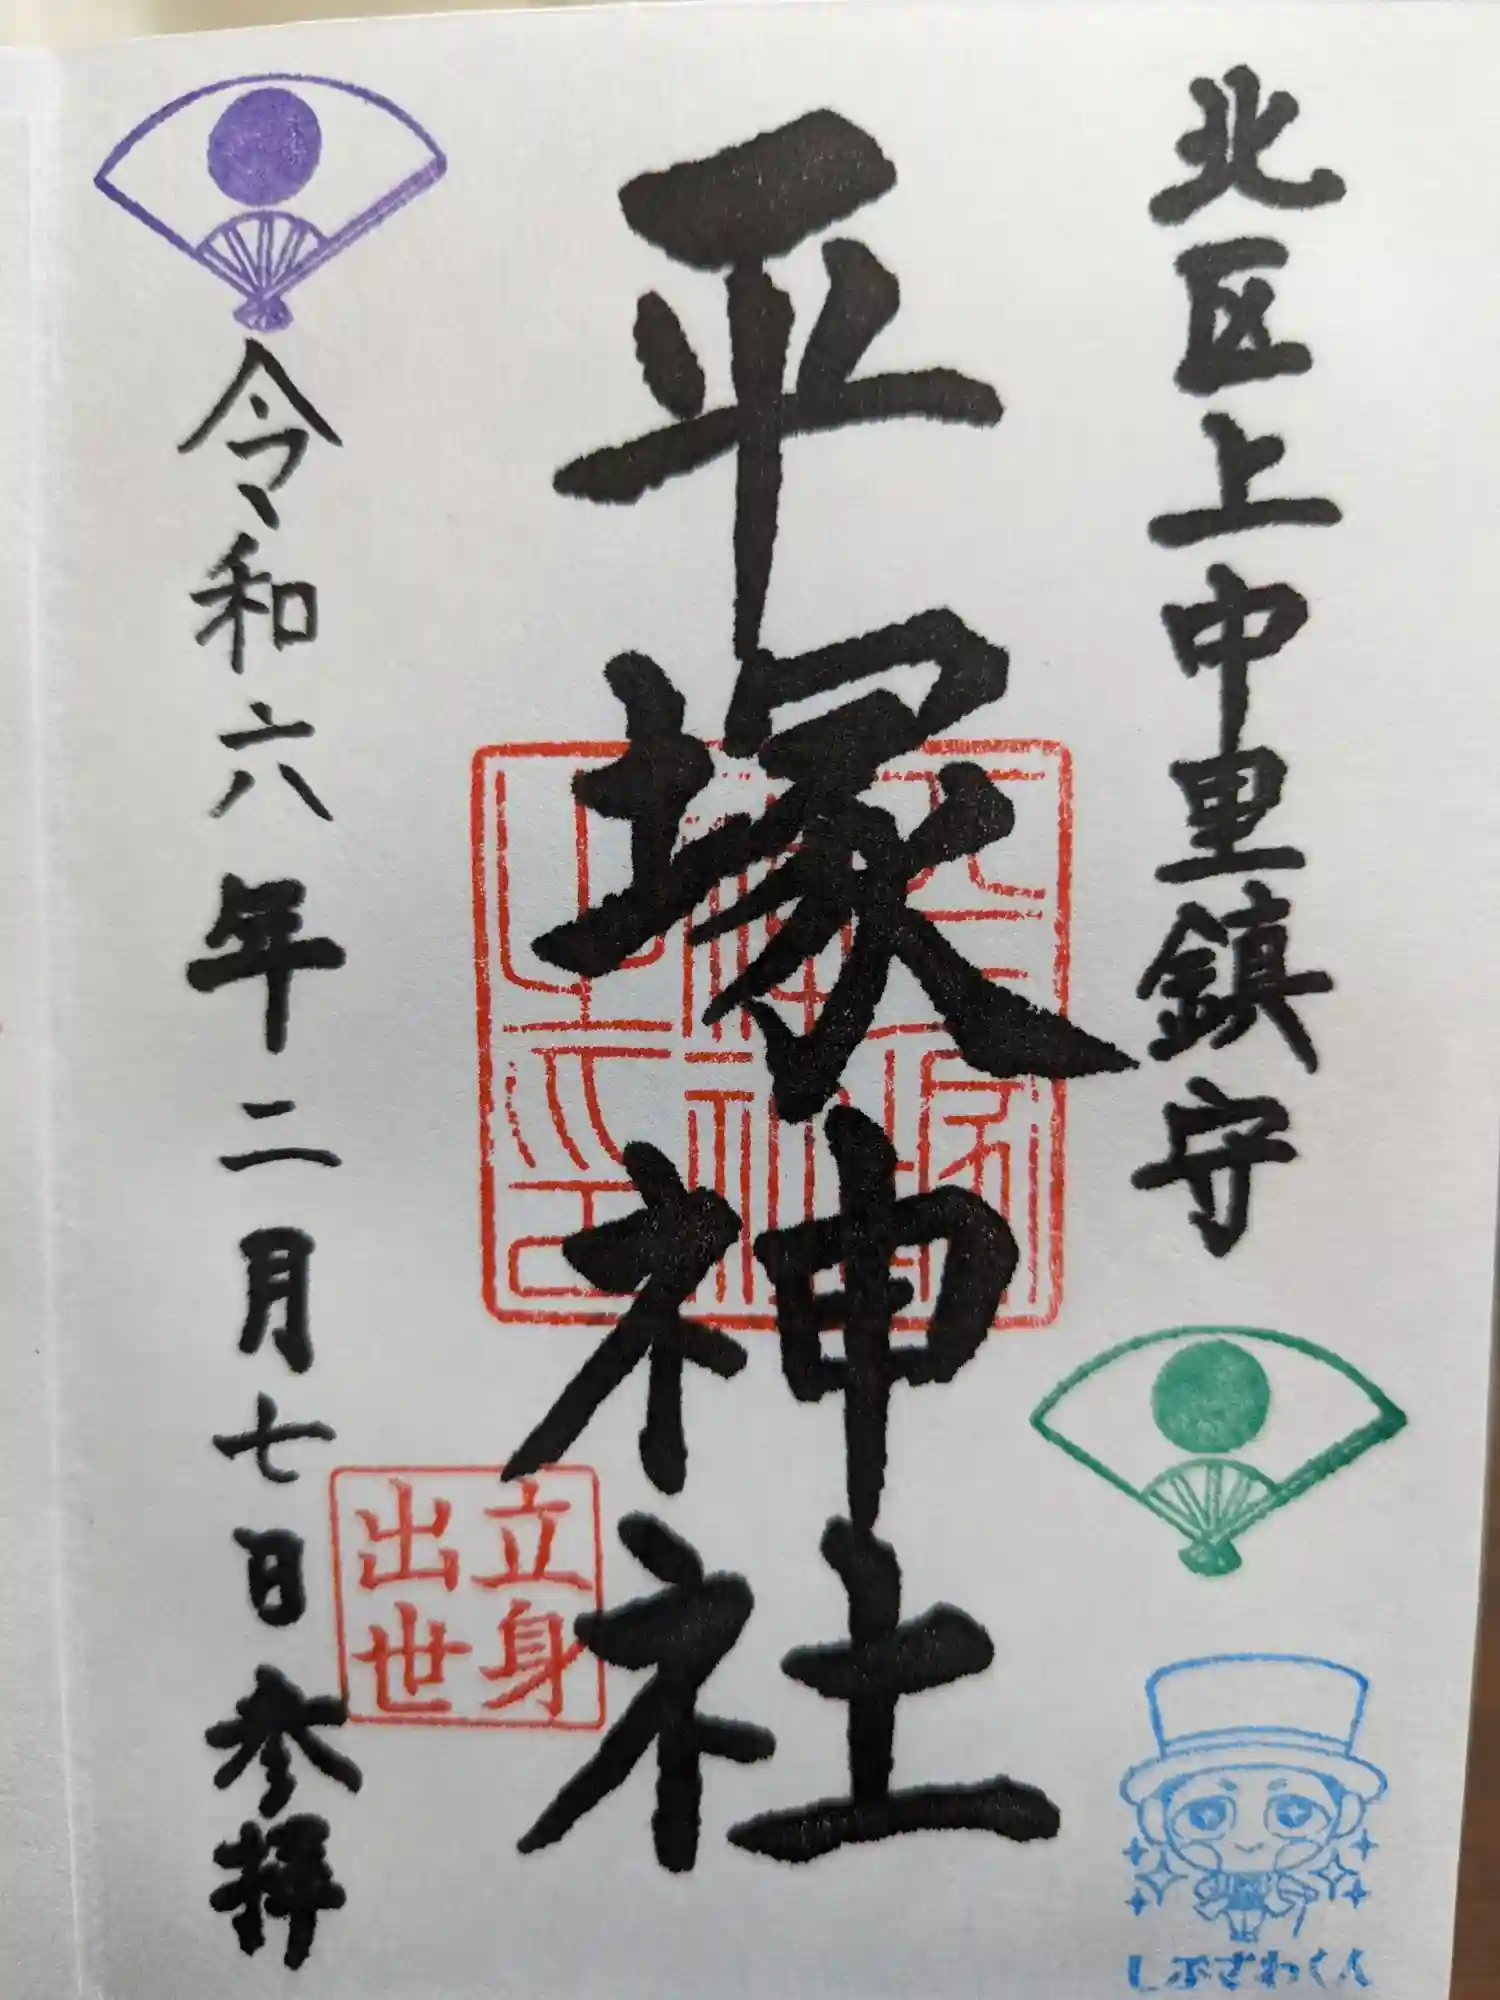 北区上中里鎮守
平塚神社
立身
出世
令和六年二月七日参拝
しぶざわくん